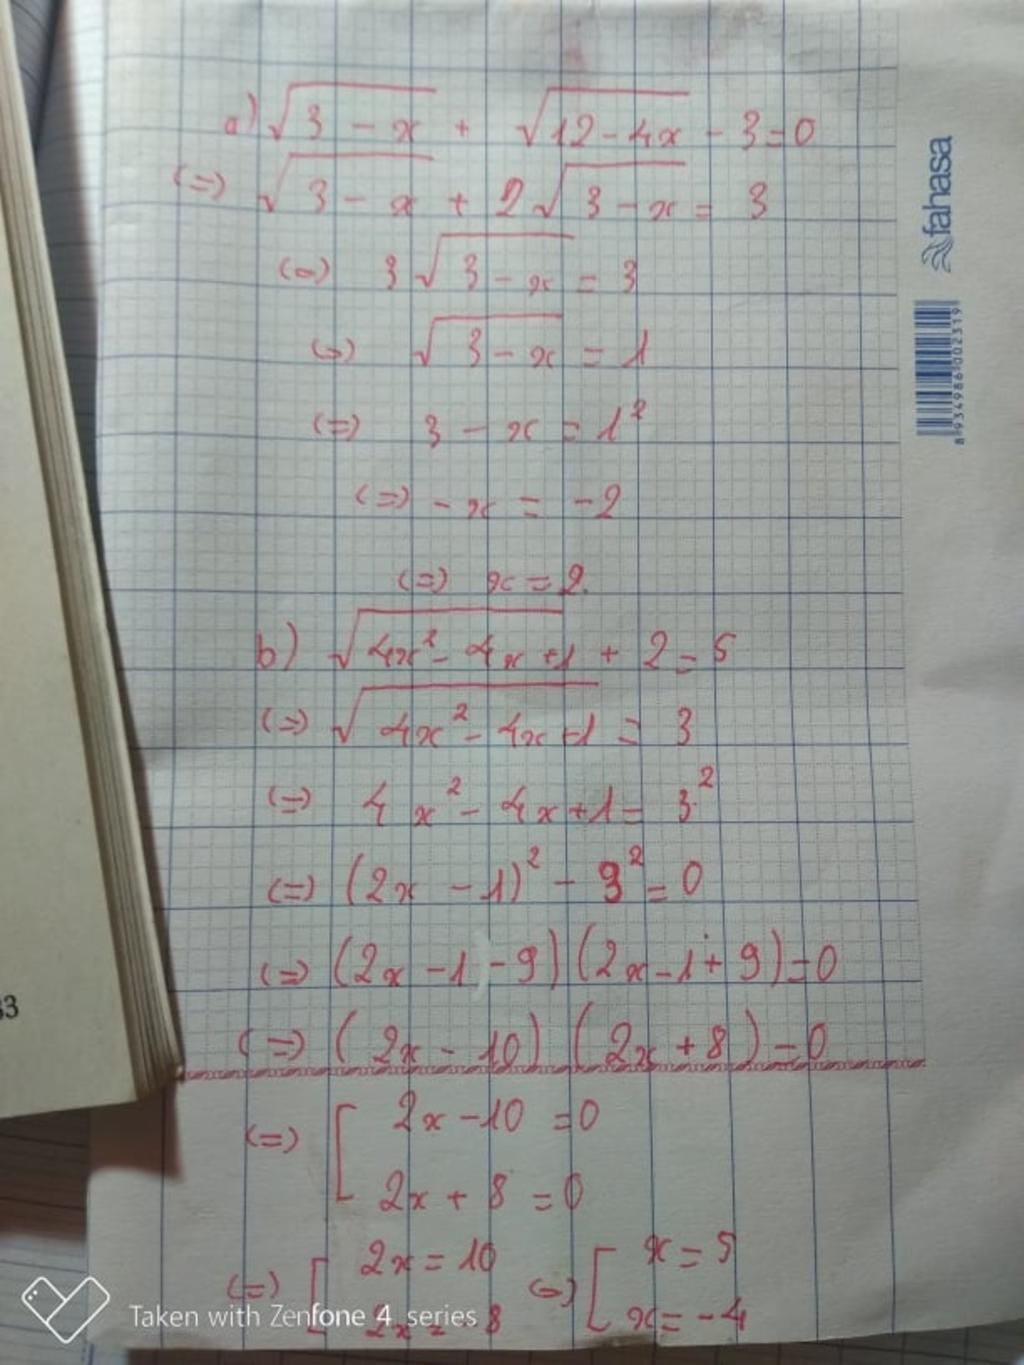 a) √(3 - x) + √(12 - 4x) - 3 = 0
(=) √(3 - x) + 2√(3 - x) = 3
(=) 3√(3 - x) = 3
(=) √(3 - x) = 1
(=) 3 - x = 1²
(=) - x = -2
(=) x = 2.
b) √(4x² - 4x + 1) + 2 = 5
(=) √(4x² - 4x + 1) = 3
(=) 4x² - 4x + 1 = 3²
(=) (2x - 1)² - 9² = 0
(=) (2x - 1 - 9) (2x - 1 + 9) = 0
(=) (2x - 10) (2x + 8) = 0
(=) [ 2x - 10 = 0
2x + 8 = 0
(=) [ 2x = 10 (=) [ x = 5
2x = - 8 x = -4
fahasa
8 934986 002319
33
Taken with Zenfone 4 series